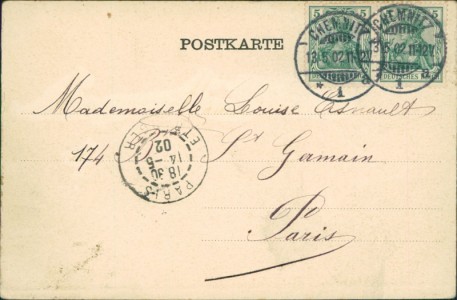 POSTKARTE
5 5 5 5
CHEMNITZ
13.5.02.11-12V.
* 1
CHEMNITZ
13.5.02.11-12V.
1
DEUTSCHES
Mademoiselle Louise Esnault
174 St Germain
Paris
PARIS
18 30
14 - 5
02